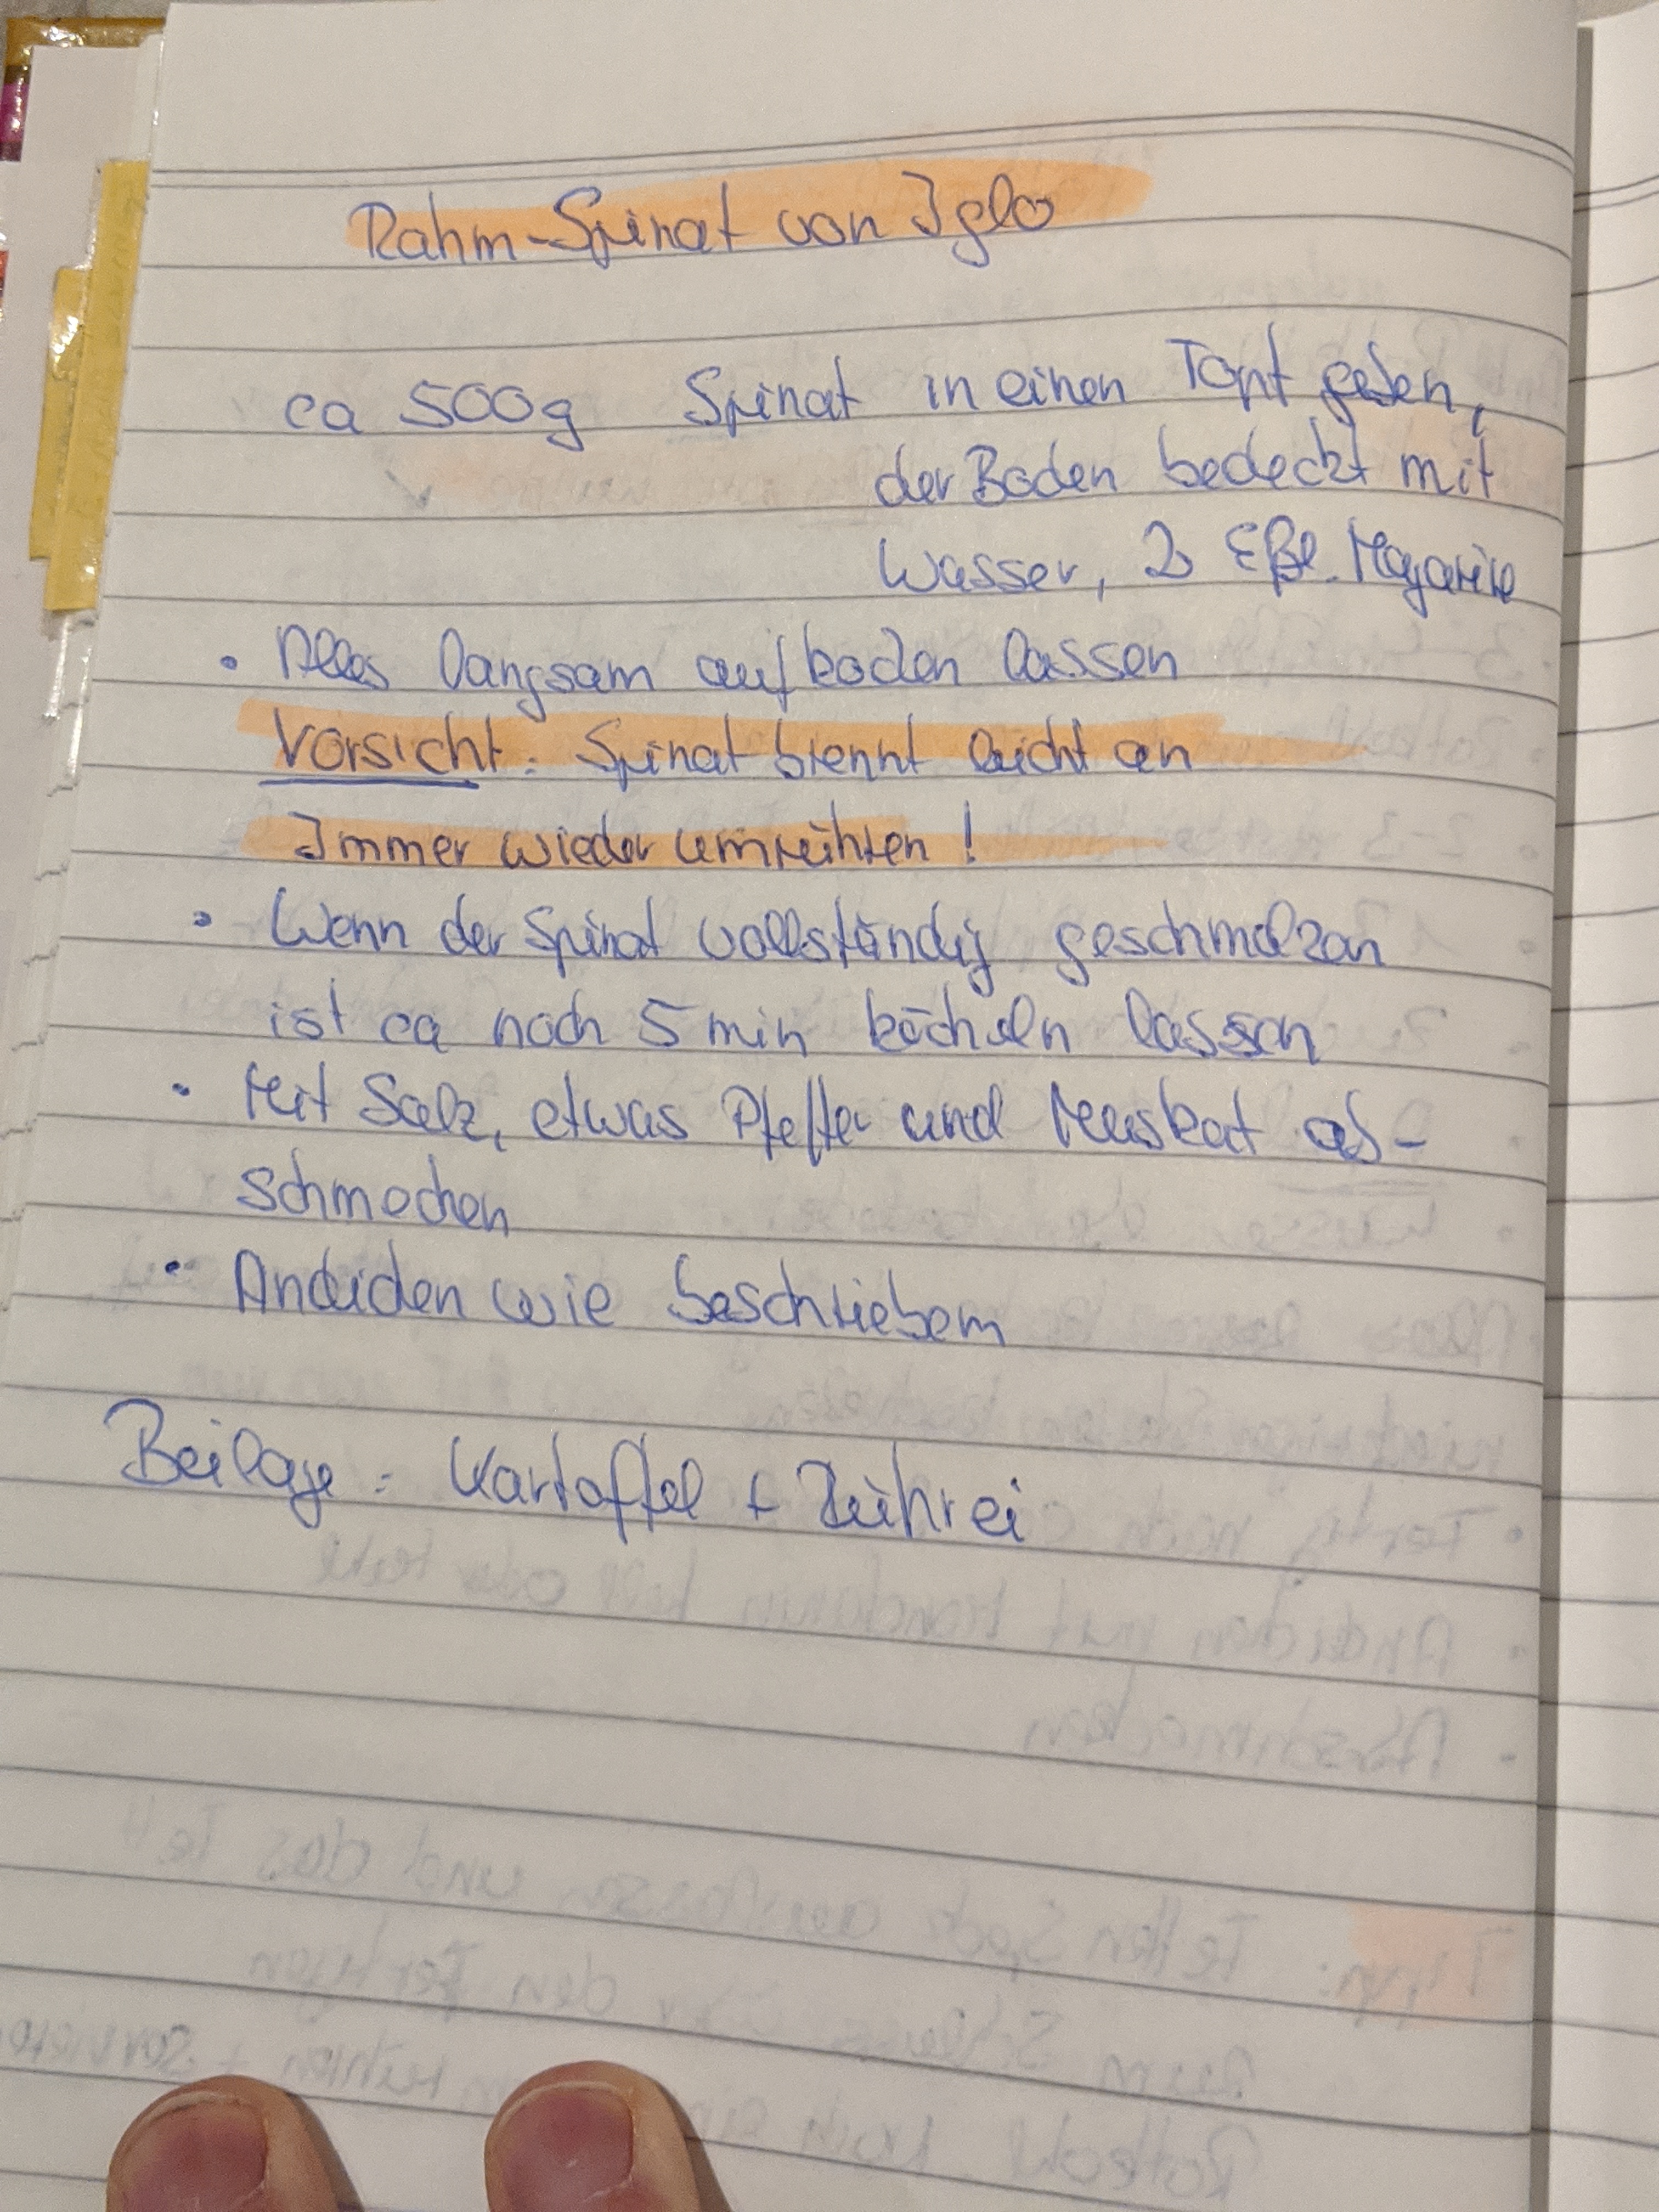 Rahm-Spinat von Iglo
ca 500g Spinat in einen Topf geben,
der Boden bedeckt mit
Wasser, 2 Eßl. Magarine
• Alles langsam aufkochen lassen
Vorsicht: Spinat brennt leicht an
Immer wieder umrühren!
• Wenn der Spinat vollständig geschmolzen
ist ca noch 5 min köcheln lassen
• Mit Salz, etwas Pfeffer und Muskat ab-
schmecken
• Andicken wie beschrieben
Beilage: Kartoffel + Rührei